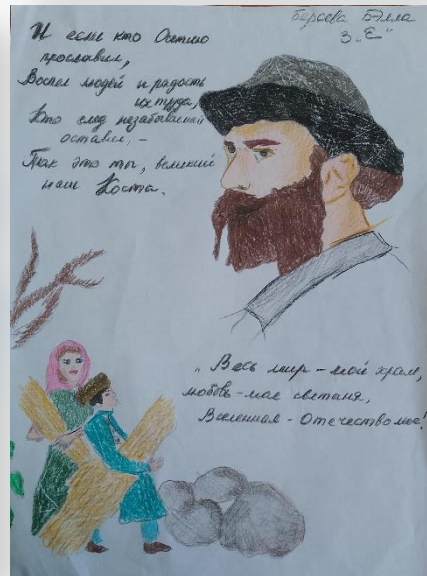 Берсева Бэлла
3 „Е"
И если кто Осетию
прославил,
Воспел людей и радость
их труда,
Кто след незабываемый
оставил, –
Так это ты, великий
наш Коста.
„Весь мир – мой храм,
любовь – моя святыня,
Вселенная – Отечество мое!